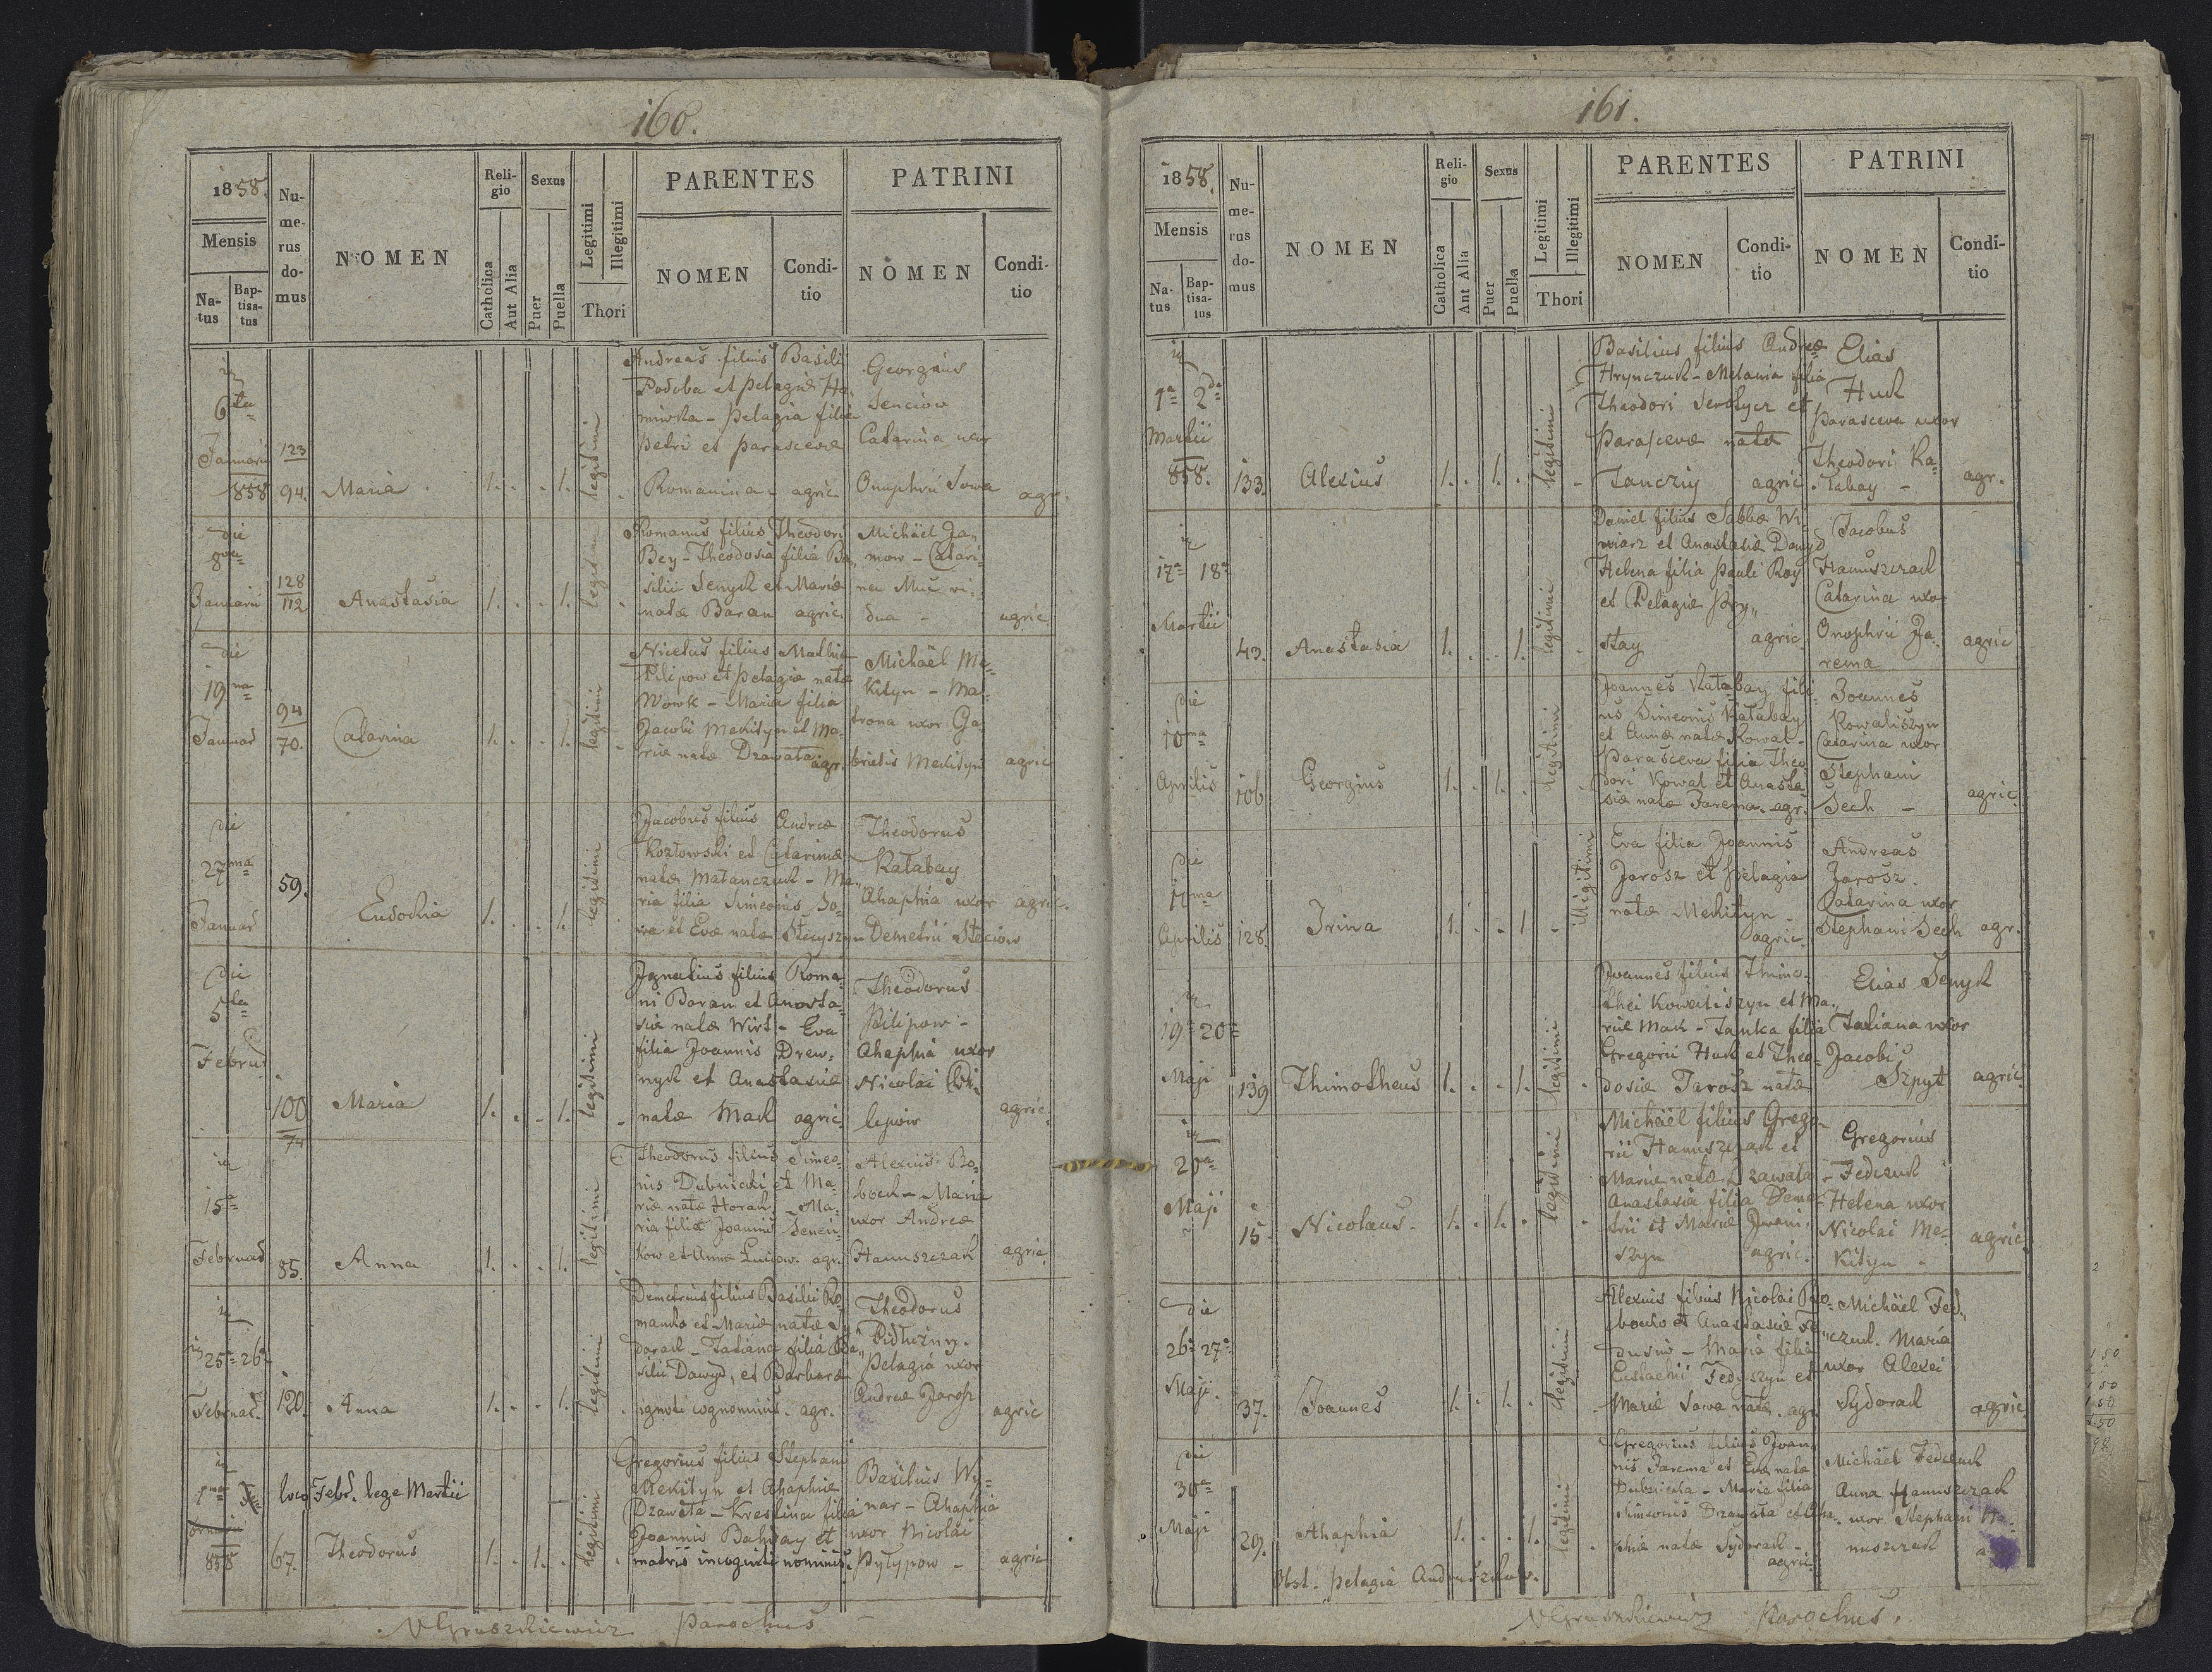 160.
1858.
Mensis
Na-
tus
Bap-
tisa-
tus
Nu-
me-
rus
do-
mus
NOMEN
Reli-
gio
Catholica
Aut Alia
Sexus
Puer
Puella
Legitimi
Illegitimi
Thori
PARENTES
NOMEN
Condi-
tio
PATRINI
NOMEN
Condi-
tio
6ta
Januarii
858
123
94.
Maria
1. . . 1.
legitimi
Andreas filius Basili
Podoba et Pelagiæ Ho-
miwka - Pelagia filia
Petri et Parascevæ
Romanina agric.
Georgius
Senciow
Catarina uxor
Onuphrii Sowa agr.
die
8va
Januarii
128
112
Anastasia
1. . . 1.
legitimi
Romanus filius Theodori
Bey - Theodosia filia Ba„
silii Senyk et Mariæ
natæ Baran agric.
Michäel Ja„
mow - Catari-
na Muc vi-
dua - agric.
die
19na
Januar
94
70.
Catarina
1. . . 1.
legitimi
Nicetus filius Mathiæ
Pilipow et Pelagiæ natæ
Wowk - Maria filia
Jacobi Mekityn et Ma-
riæ natæ Dzawata agr.
Michäel Me-
kityn - Ma-
trona uxor Ga-
brielis Mekityn agric
die
27ma
Januar
59.
Eudochia
1. . . 1.
legitimi
Jacobus filius Andreæ
Kozłowski et Catarinæ
natæ Małanczuk - Ma-
ria filia Simeonis So-
wa et Evæ natæ Stecyszyn
Theodorus
Katabay
Ahaphia uxor agric.
Demetrii Steciow
die
5ta
Febru
100
74
Maria
1. . . 1.
legitimi
Ignatius filius Roma-
ni Baran et Anasta-
siæ natæ Wirt - Eva
filia Joannis Drew-
nyk et Anastasiæ
natæ Mak agric.
Theodorus
Pilipow -
Ahaphia uxor
Nicolai
agric.
15a
Februar
85.
Anna
1. . . 1.
legitimi
Theodorus filius Simeo-
nis Dubnicki et Ma-
riæ natæ Horak - Ma-
ria filia Joannis Senciu-
kow et Annæ agr.
Alexius Bo-
bock - Maria
uxor Andreæ
Hanuszczak agric
25a 26a
Februar.
120.
Anna
1. . . 1.
legitimi
Demetrius filius Basilii Ro-
manko et Mariæ natæ Sy-
dorak - Tatiana filia Ba„
silii Dawyd, et Barbaræ
ignoti cognominis. agr.
Theodorus
Pidłużny.
Pelagia uxor
Andreæ Jarosz
agric
858
67.
loco Febr. lege Martii
Theodorus
1. . 1. .
legitimi
Gregorius filius Stephani
Mekityn et Ahaphiæ
Dzawata - Krestina filia
Joannis Bahday et
matris incogniti nominis.
Basilius Wy-
nar - Ahaphia
uxor Nicolai
Pyłypow - agric
NGruszkiewicz Parochus
161.
1858.
Mensis
Na-
tus
Bap-
tisa-
tus
Nu-
me-
rus
do-
mus
NOMEN
Reli-
gio
Catholica
Ant Alia
Sexus
Puer
Puella
Legitimi
Illegitimi
Thori
PARENTES
NOMEN
Condi-
tio
PATRINI
NOMEN
Condi-
tio
1a 2da
Martii
858.
133.
Alexius
1. . 1. .
legitimi
Basilius filius Andreæ
Hrynczuk - Melania filia
Theodori Serotycz et
Parascevæ natæ
Jancziy agric.
Elias
Huk
Parasceva uxor
Theodori Ka-
tabay - agr.
17a 18a
Martii
43.
Anastasia
1. . . 1.
legitimi
Daniel filius Sabbæ Wi-
niarz et Anastasiæ Dawyd
Helena filia Pauli Roy
et Pelagiæ Pry„
stay agric.
Jacobus
Hanuszczak
Catarina uxor
Onophrii Ja-
rema
agric
die
10ma
Aprilis
106
Georgius
1. . 1. .
legitimi
Joannes Katabay fili-
us Simeonis Katabay
et Annæ natæ Kowal -
Parasceva filia Theo-
dori Kowal et Anasta-
siæ natæ Jarema agr.
Joannes
Kowaliszyn
Catarina uxor
Stephani
Sech - agric.
die
11ma
Aprilis
128.
Irina
1. . . 1
Illegitimi
Eva filia Joannis
Jarosz et Pelagia
natæ Mekityn -
agric.
Andreas
Jarosz.
Catarina uxor
Stephani Sech agr.
19a 20a
Maji
139
Thimotheus
1. . . 1.
legitimi
Joannes filius Thimo-
thei Kowaliszyn et Ma„
riæ Mak - Janka filia
Gregorii Huk et Theo-
dosiæ Jarosz natæ
Elias Senyk
Tatiana uxor
Jacobi
Szpyt agric
20a
Maji
15
Nicolaus -
1. . 1. .
legitimi
Michäel filius Grego-
rii Hanuszczak et
Mariæ natæ Dzawata
Anastasia filia Deme-
trii et Mariæ Iwani-
szyn agric.
Gregorius
Fedczuk
Helena uxor
Nicolai Me-
kityn -
agric
die
26a 27a
Maji.
37.
Joannes
1. . 1. .
legitimi
Alexius filius Nicolai Bo-
bocko et Anastasiæ
- Maria filia
Eustachii Fedyszyn et
Mariæ Sowa natæ. agr
Michäel Fed„
„czuk. Maria
uxor Alexei
Sydorak agric.
die
30a
Maji
29.
Ahaphia
1. . . 1.
legitimi
Gregorius filius Joan-
nis Jarema et Evæ natæ
Dubnicka - Maria filia
Simeonis Dzawata et Aha-
phiæ natæ Sydorak -
agric
Michäel Fedczuk
Anna Hanuszczak
uxor Stephani Ha-
nuszczak
Obst. Pelagia Andruszkow.
NGruszkiewicz Parochus.